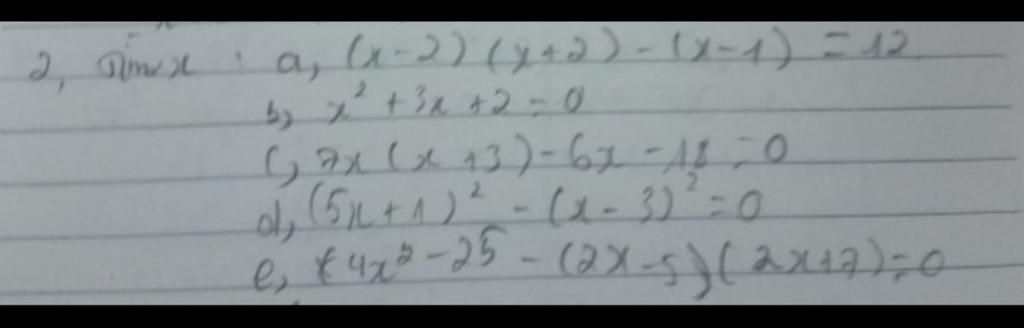 2, Tìm x : a, (x-2) (x+2) - (x-1) = 12
b, x² + 3x + 2 = 0
c, 7x (x + 3) - 6x - 18 = 0
d, (5x + 1)² - (x - 3)² = 0
e, 4x² - 25 - (2x - 5) (2x + 7) = 0